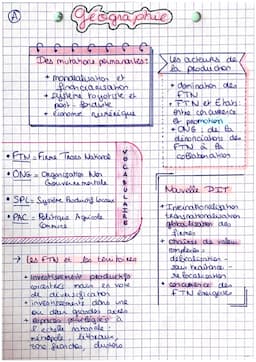 A
géographie
Des mutations permanentes:
• mondialisation et
financiarisation
• système toyotiste et
post-fordiste
• économie numérique
Les acteurs de
la production
• domination des
FTN
• FTN et États:
entre concurrence
et promotion
• ONG: de la
dénonciation des
FTN à la
collaboration
• FTN = Firme Trans Nationale
• ONG = Organisation Non
Gouvernementale
• SPL = Système Productif Local
• PAC = Politique Agricole
Commune
VOCABULAIRE
Nouvelle DIT
• Internationalisation
transnationalisation
globalisation des
firmes
• chaînes de valeur
complexes:
délocalisation -
sous-traitance -
relocalisation
• concurrence des
FTN émergentes
→ Les FTN et les territoires
• investissements productifs
orientés mais en voie
de diversification
• investissements dans une
ou deux grandes aires
• espaces privilégiés à
l'échelle nationale:
métropole, littoraux,
zone franches,